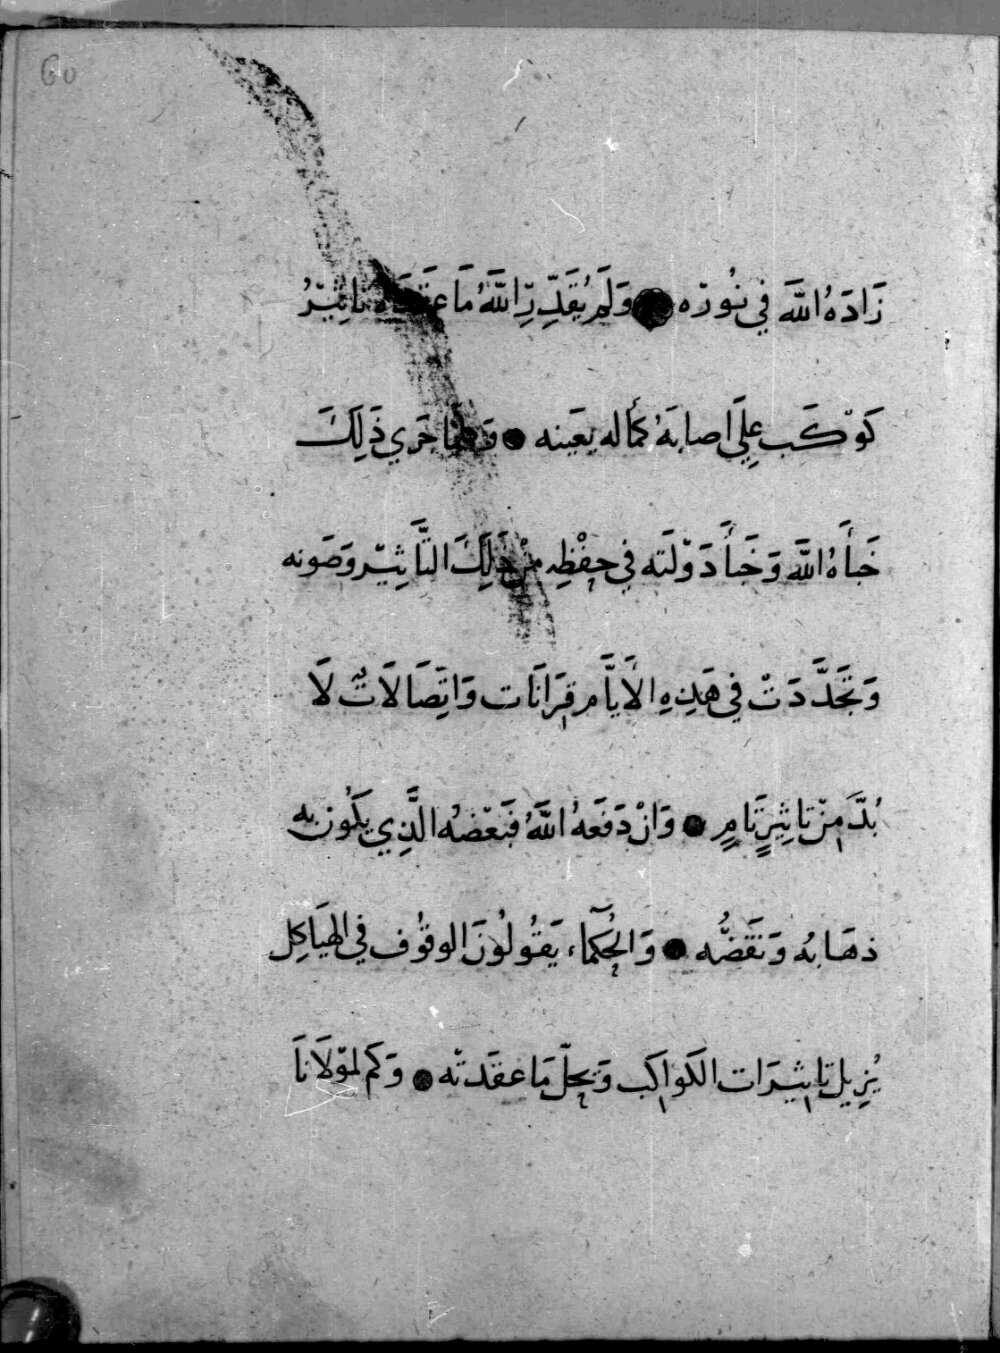 60
زَادَهُ اللَّهَ في نُورِه ● وَلَم يُقَدِّرِ اللَّهُ مَا عَقَدَهُ تَاثِيْرُ
كَوْكَب عِلَي اَصابَةُ كمَاله يعَينه ● وَلمَا جَرَي ذَلِكَ
خَبأَهُ اللَّهَ وَخَبأَ دَوْلَته في حِفْظِه مِنْ ذَلِكَ التَّاثِيْر وَصَونه
وَتجَدَّدَتْ في هَذِهِ الأَيَّام قِرَانَات وَاتِصَالَاتٌ لَا
بُدَّ مِنْ تاثِيرٍ تَامٍ ● وَانْ دَفَعَهُ اللَّهُ فَبَعْضُه الَّذِي يَكُون به
ذهَابُه وَنَقَضُّه ● وَالحُكَمآء يَقُولُونَ الوقُوف في الهيَاكِل
يُزِيل تاثِيرَات الكَوَاكِب وَيحِلّ مَا عقَدتْه ● وَكَم لموْلَانَا